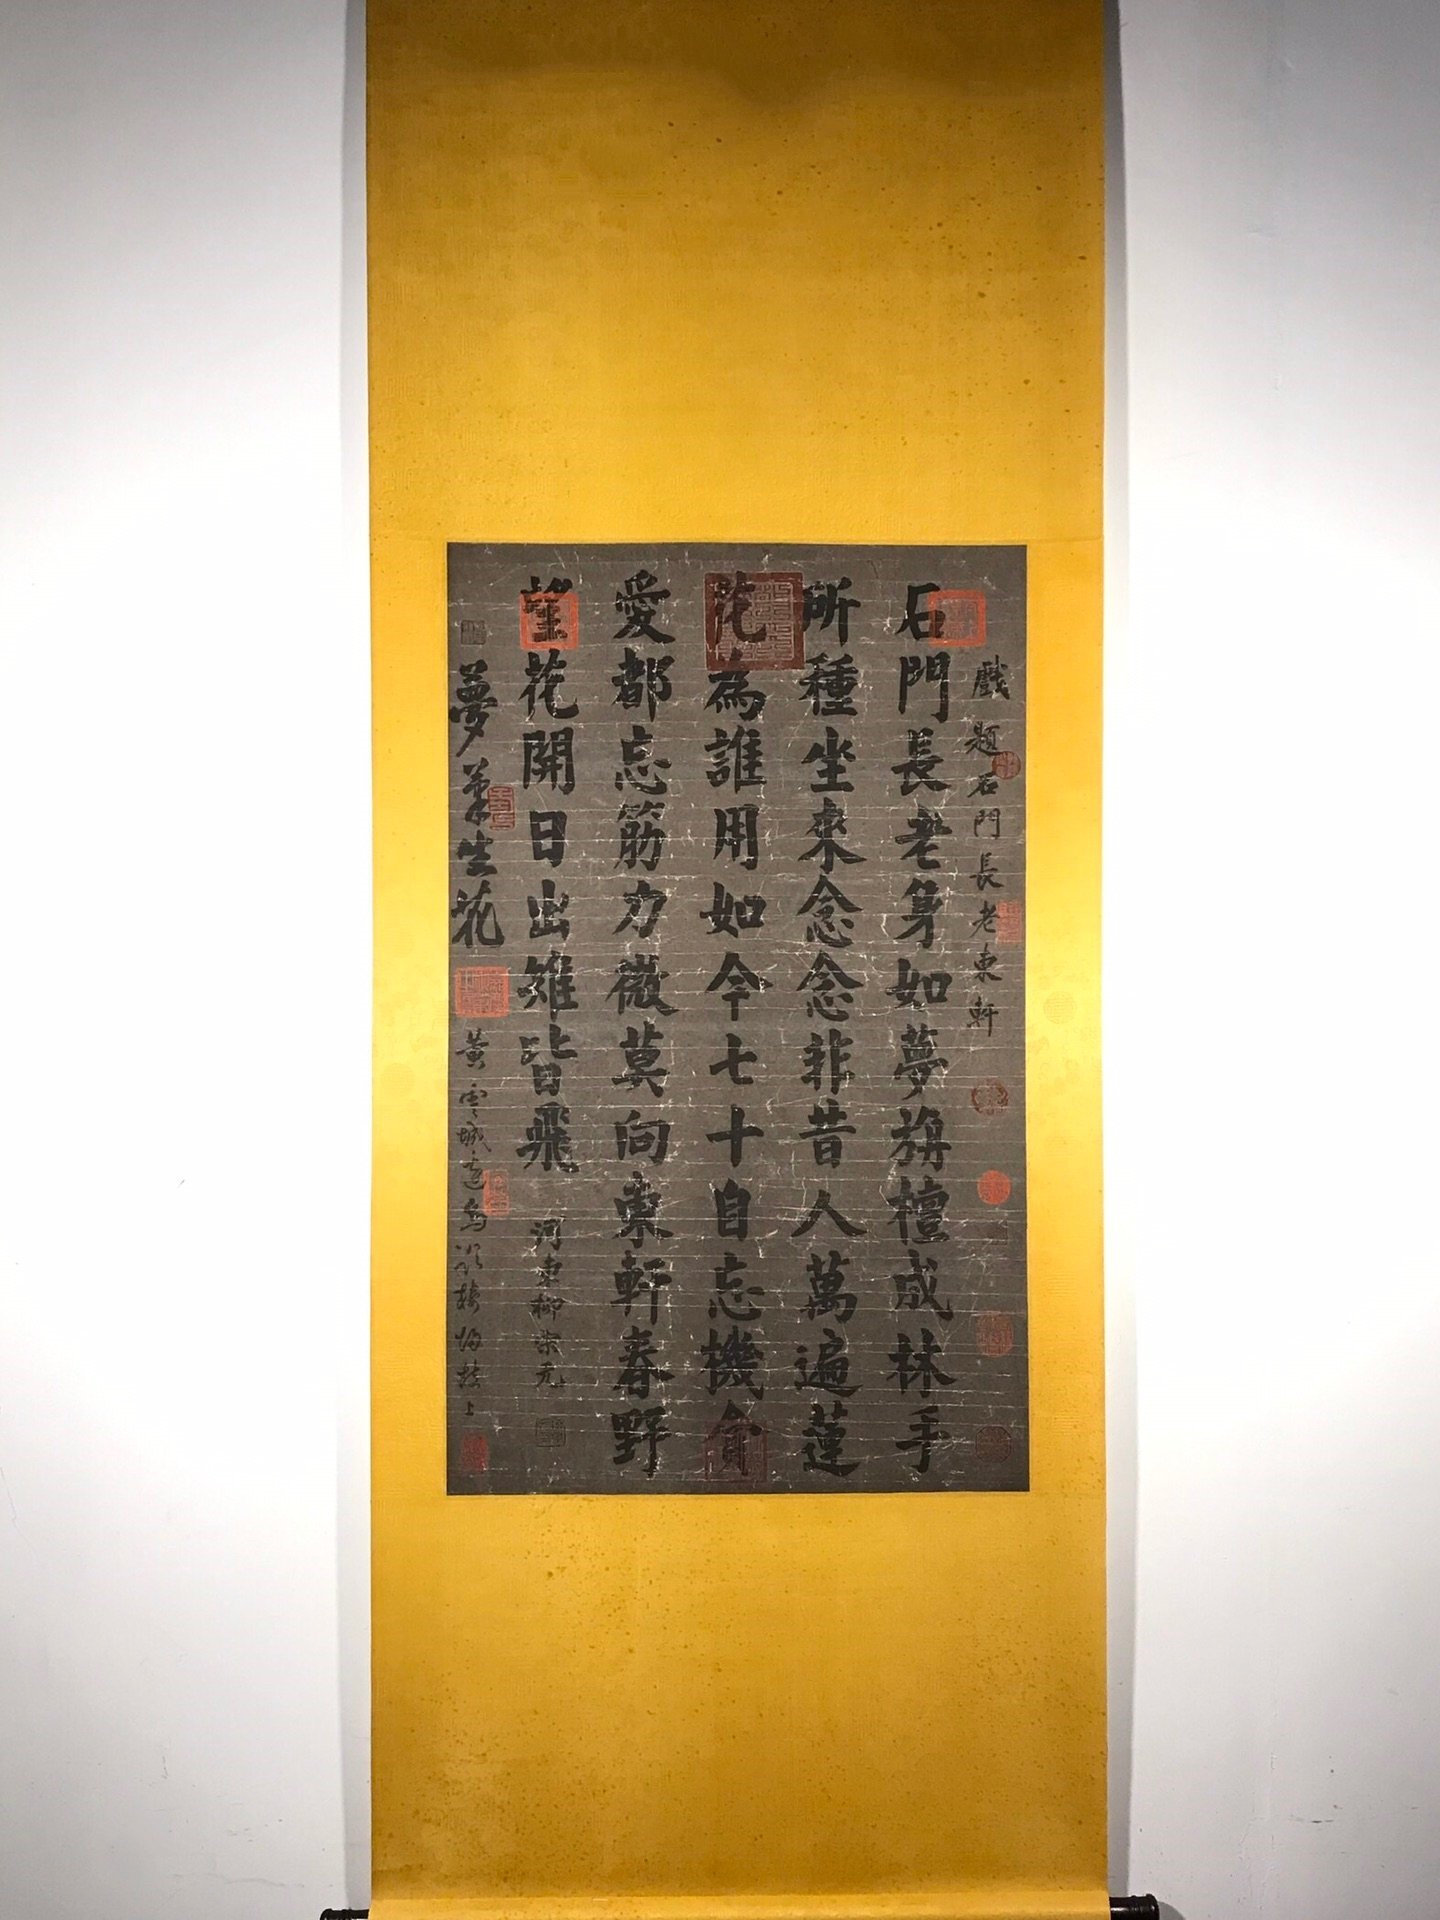 戲題石門長老東軒
石門長老身如夢旃檀成林手
所種坐來念念非昔人萬遍蓮
花為誰用如今七十自忘機貪
愛都忘筋力微莫向東軒春野
望花開日出雉皆飛
河東柳宗元
夢筆生花
黃雲城邊烏欲棲歸棲枝上